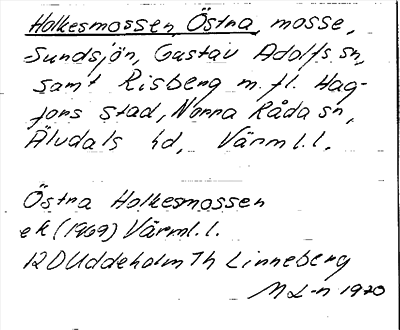 Holkesmossen, Östra, mosse,
Sundsjön, Gustav Adolfs sn,
samt Risberg m. fl. Hag-
fors stad, Norra Råda sn,
Älvdals hd, Värml. l.
Östra Holkesmossen
ek (1969) Värml. l.
12D Uddeholm Th Linneberg
M L-n 1970